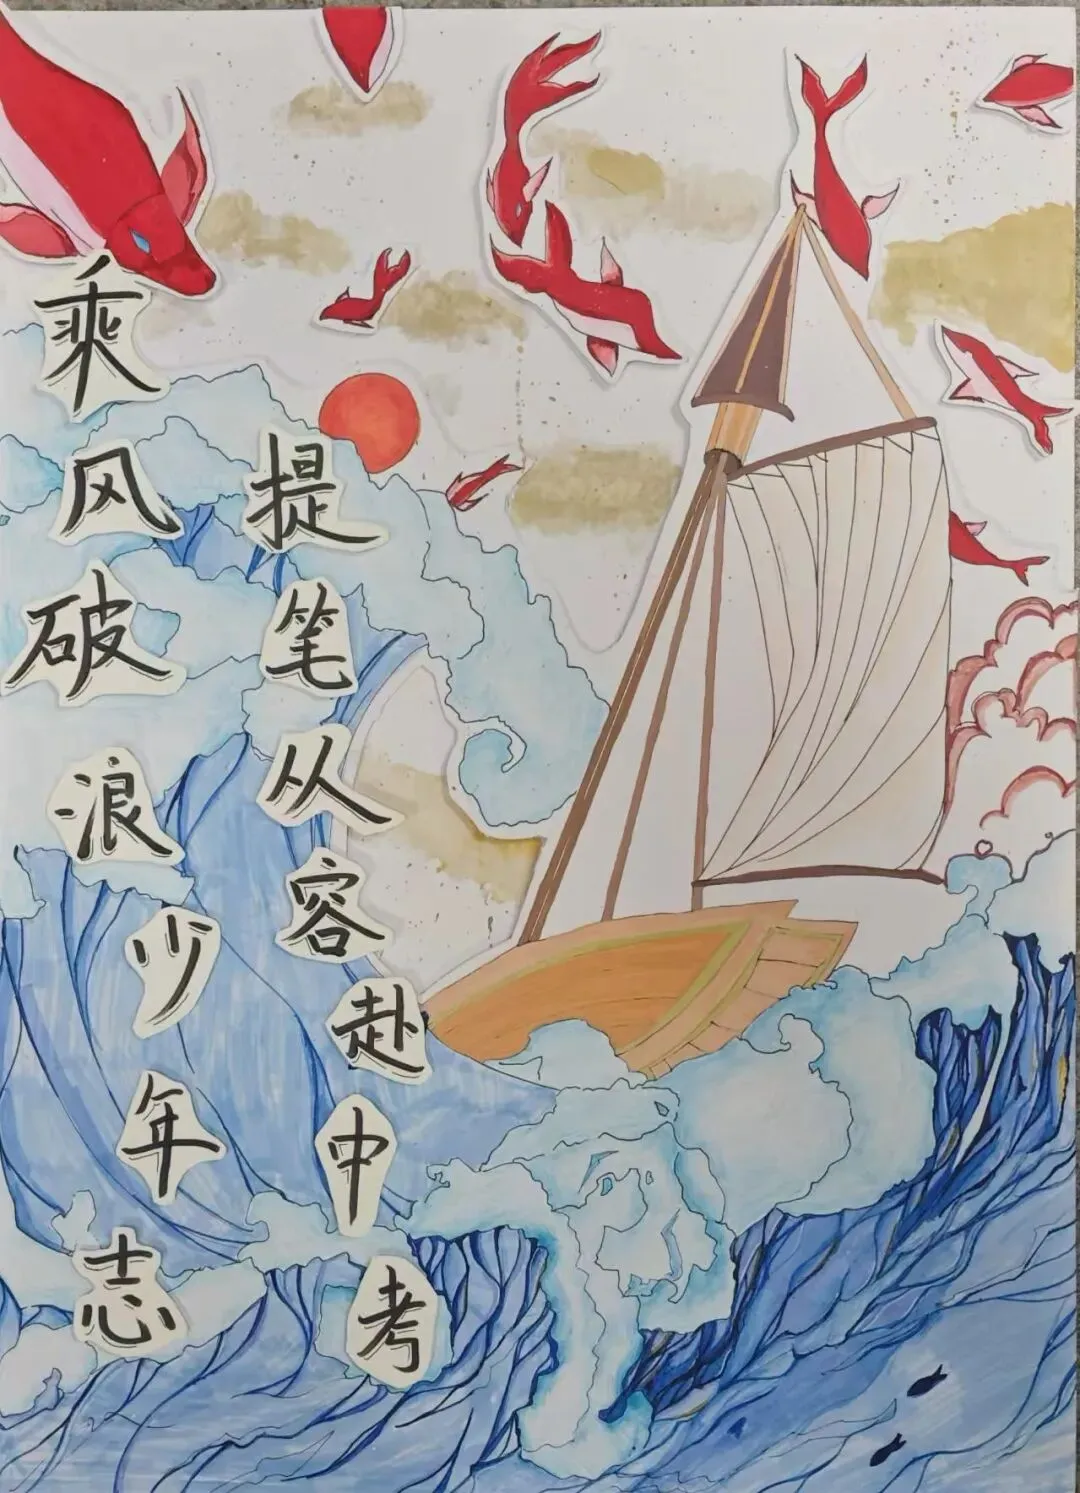 乘风破浪少年志
提笔从容赴中考